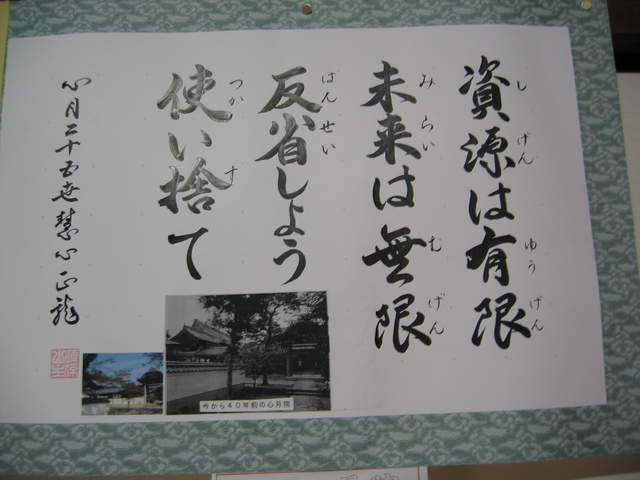 資源は有限
未来は無限
反省しよう
使い捨て
心月二十五世慧心正龍
今から40年前の心月院